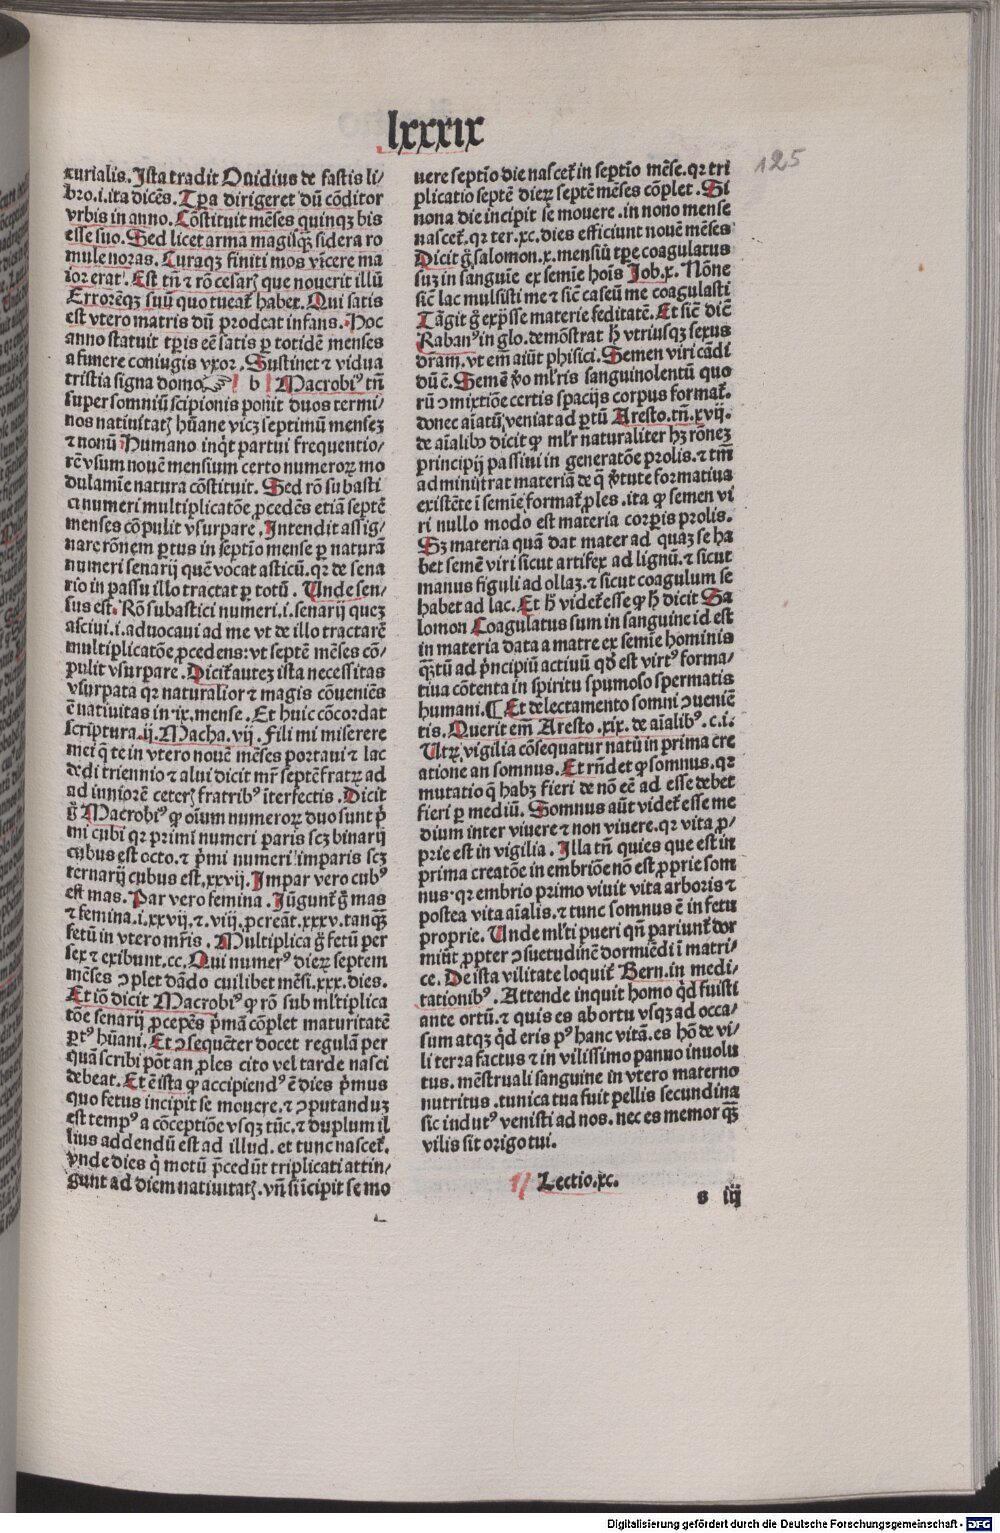 lxxxix
125
curialis. Ista tradit Ouidius de fastis li/
bro.i.ita dicēs. Tp̄a dirigeret dū cōditor
vrbis in anno. Cōstituit mēses quinqꝫ bis
esse suo. Sed licet arma magisqꝫ sidera ro
mule noras. Curaqꝫ finiti mos vicere ma
ior erat. Est tn̄ ⁊ rō cesarꝭ que nouerit illū
Errorēqꝫ suū quo tueat᷑ habet. Qui satis
est vtero matris dū prodeat infans. Hoc
anno statuit tp̄is eē satis ꝑ totidē menses
a funere coniugis vxor. Sustinet ⁊ vidua
tristia signa domo b Macrobiꝰ tn̄
super somniū scipionis ponit duos termi/
nos natiuitatꝭ hūane vicꝫ septimū mensez
⁊ nonū Humano inq̇t partui frequentio/
rē vsum nouē mensium certo numeroꝝ mo
dulamīe natura cōstituit. Sed rō subasti
ci numeri multiplicatōe ꝓcedēs etiā septē
menses cōpulit vsurpare. Intendit assig/
nare rōnem ꝑtus in septīo mense ꝑ naturā
numeri senarij quē vocat asticū. qꝛ de sena
rio in passu illo tractat ꝑ totū. Unde sen/
sus est. Rō subastici numeri.i.senarij quez
asciui.i.aduocaui ad me vt de illo tractarē
multiplicatōe ꝓcedens: vt septē mēses cō/
pulit vsurpare. Dicit᷑ autez ista necessitas
vsurpata qꝛ naturalior ⁊ magis cōueniēs
ē natiuitas in.ix.mense. Et huic cōcordat
scriptura.ij. Macha.vij. Fili mi miserere
mei q̄ te in vtero nouē mēses portaui ⁊ lac
dedi triennio ⁊ alui dicit mr̄ septē fratꝝ ad
ad iuniorē ceterꝭ fratribꝰ īterfectis. Dicit
g̊ Macrobiꝰ ꝙ oīum numeroꝝ duo sunt p̄
mi cubi qꝛ primi numeri paris scꝫ binarij
cubus est octo. ⁊ p̄mi numeri imparis scꝫ
ternarij cubus est.xxvij. Impar vero cubꝰ
est mas. Par vero femina. Iūgunt᷑ g̊ mas
⁊ femina.i.xxvij.⁊.viij.ꝓcreāt.xxxv.tanqꝫ̄
fetū in vtero mr̄is. Multiplica g̊ fetū per
sex ⁊ exibunt.cc. Qui numerꝰ dieꝝ septem
mēses ↄplet dādo cuilibet mēsi.xxx.dies.
Et iō dicit Macrobiꝰ ꝙ rō sub ml̄tiplica
tōe senarij ꝓcepēs p̄mā cōplet maturitatē
ꝑtꝰ hūani. Et ↄsequēter docet regulā per
quā scribi pōt an ꝓles cito vel tarde nasci
debeat. Et ē ista ꝙ accipiendꝰ ē dies p̄mus
quo fetus incipit se mouere. ⁊ ↄputanduz
est tempꝰ a cōceptiōe vsqꝫ tūc. ⁊ duplum il
lius addendū est ad illud. et tunc nascet᷑.
vnde dies q̇ motū p̄cedūt triplicati attin/
gunt ad diem natiuitatꝭ. vn̄ si īcipit se mo
uere septīo die nascet᷑ in septīo mēse. qꝛ tri
plicatio septē dieꝝ septē mēses cōplet. Si
nona die incipit se mouere. in nono mense
nascet᷑. qꝛ ter.xc.dies efficiunt nouē mēses
Dicit g̊ salomon.x.mensiū tp̄e coagulatus
sum in sanguīe ex semīe hoīs Iob.x. Nōne
sic̄ lac mulsisti me ⁊ sic̄ caseū me coagulasti
Tāgit g̊ exp̄sse materie feditatē. Et sic̄ dic̄
Rabanꝰ in glo. demōstrat h̄ vtriusqꝫ sexus
dram. vt em̄ aiūt phisici. Semen viri cādi
dū ē. Semē v̊o ml̄ris sanguinolentū quo
rū ↄmixtiōe certis spacijs corpus format᷑.
donec aīatū veniat ad ꝑtū Aresto.tn̄.xvij.
de aīalibꝰ dicit ꝙ ml̄r naturaliter hꝫ rōnez
principij passiui in generatōe prolis. ⁊ tm̄
administrat materiā de q̄ v̊tute formatiua
existēte ī semīe format᷑ ꝓles. ita ꝙ semen vi
ri nullo modo est materia corꝑis prolis.
Sꝫ materia quā dat mater ad quaꝫ se ha
bet semē viri sicut artifex ad lignū. ⁊ sicut
manus figuli ad ollaꝫ. ⁊ sicut coagulum se
habet ad lac. Et h̄ videt᷑ esse ꝙ h̄ dicit Sa
lomon Coagulatus sum in sanguine id est
in materia data a matre ex semīe hominis
qꝫ̄tū ad p̄ncipiū actiuū qd̄ est virtꝰ forma/
tiua cōtenta in spiritu spumoso spermatis
humani. ¶ Et delectamento somni ↄueniē
tis. Querit em̄ Aresto.xix.de aīalibꝰ.c.i.
Utꝝ vigilia cōsequatur natū in prima cre
atione an somnus. Et rn̄det ꝙ somnus. qꝛ
mutatio q̄ habꝫ fieri de nō eē ad esse debet
fieri ꝑ mediū. Somnus aūt videt᷑ esse me
dium inter viuere ⁊ non viuere. qꝛ vita ꝓ/
prie est in vigilia. Illa tn̄ quies que est in
prima creatōe in embriōe nō est ꝓprie som
nus. qꝛ embrio primo viuit vita arboris ⁊
postea vita aīalis. ⁊ tunc somnus ē in fetu
proprie. Unde ml̄ti pueri qn̄ pariunt᷑ dor
miūt ꝓpter ↄsuetudinē dormiēdi ī matri/
ce. De ista vilitate loquit᷑ Bern. in medi/
tationibꝰ. Attende inquit homo q̇d fuisti
ante ortū. ⁊ quis es abortu vsqꝫ ad occa/
sum atqꝫ q̇d eris pꝰ hanc vitā. es hō de vi/
li terra factus ⁊ in vilissimo panno inuolu
tus. mēstruali sanguine in vtero materno
nutritus. tunica tua fuit pellis secundina
sic indutꝰ venisti ad nos. nec es memor qꝫ̄
vilis sit origo tui.
Lectio.xc.
s iij
Digitalisierung gefördert durch die Deutsche Forschungsgemeinschaft - DFG